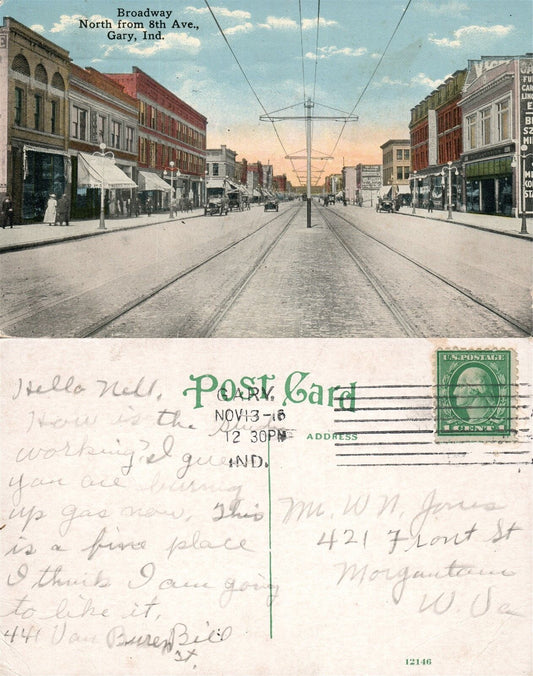 Broadway
North from 8th Ave.,
Gary, Ind.
Post Card
GARY.
NOV 13 -16
12 30 PM
IND.
U.S. POSTAGE
1 CENT 1
ADDRESS
Hello Nell,
How is the
working? I guess
you are burning
up gas now. This
is a fine place
I think I am going
to like it.
441 Van Buren Bill
St.
Mr. W N, Jones
421 Front St
Morgantown
W. Va
12146